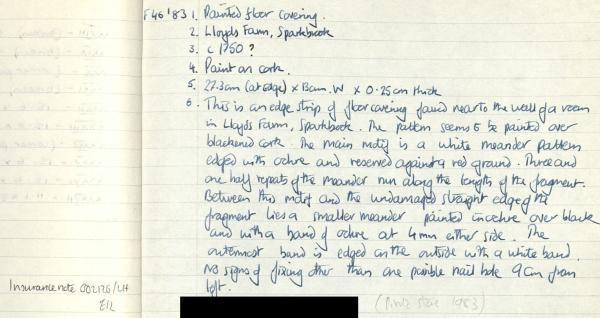 F46'83 1. Painted floor covering.
2. Lloyds Farm, Sparkbrook
3. c 1750 ?
4. Paint on cork.
5. 27.3cm (at edge) x 13cm. W x 0.25cm thick
6. This is an edge strip of floor covering found near to the wall of a room
in Lloyds Farm, Sparkbrook. The pattern seems to be painted over
blackened cork. The main motif is a white meander pattern
edged with ochre and reserved against a red ground. Three and
one half repeats of the meander run along the length of the fragment.
Between this motif and the undamaged straight edge of the
fragment lies a smaller meander painted in ochre over black
and with a band of ochre at 4mm either side. The
outermost band is edged on the outside with a white band.
No signs of fixing other than one possible nail hole 9cm from
left.
Insurance note 002126/LH
E12
1983)